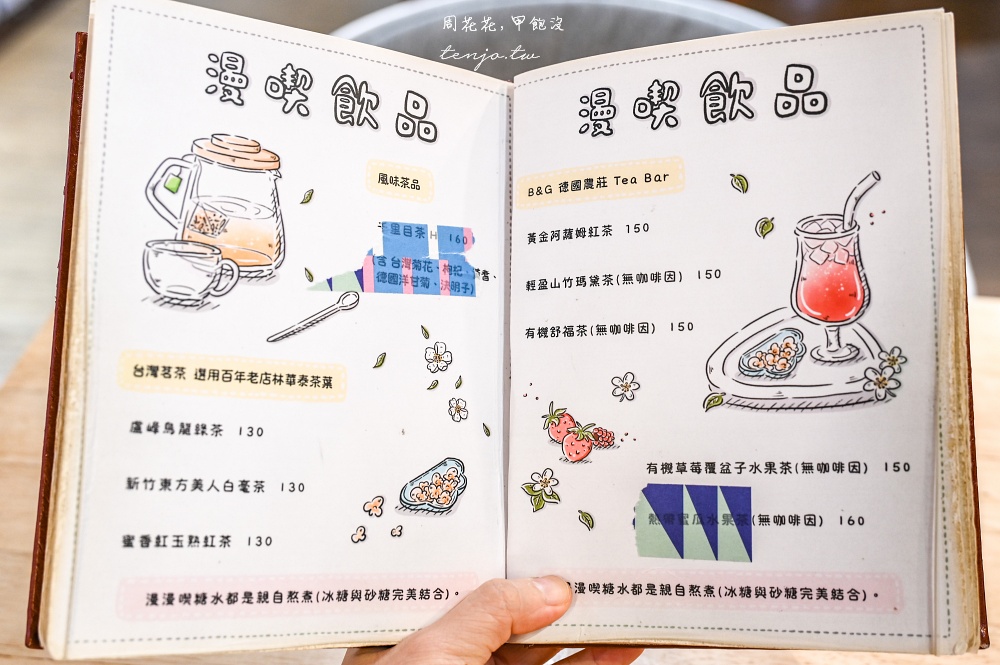 周花花,甲飽沒
tenjo.tw
漫喫飲品
風味茶品
千里目茶 H 160
(含 台灣菊花、枸杞、
德國洋甘菊、決明子)
台灣茗茶 選用百年老店林華泰茶葉
盧峰烏龍綠茶 130
新竹東方美人白毫茶 130
蜜香紅玉熟紅茶 130
漫漫喫糖水都是親自熬煮(冰糖與砂糖完美結合)。
漫喫飲品
B&G 德國農莊 Tea Bar
黃金阿薩姆紅茶 150
輕盈山竹瑪黛茶(無咖啡因) 150
有機舒福茶(無咖啡因) 150
有機草莓覆盆子水果茶(無咖啡因) 150
熱帶蜜瓜水果茶(無咖啡因) 160
漫喫糖水都是親自熬煮(冰糖與砂糖完美結合)。